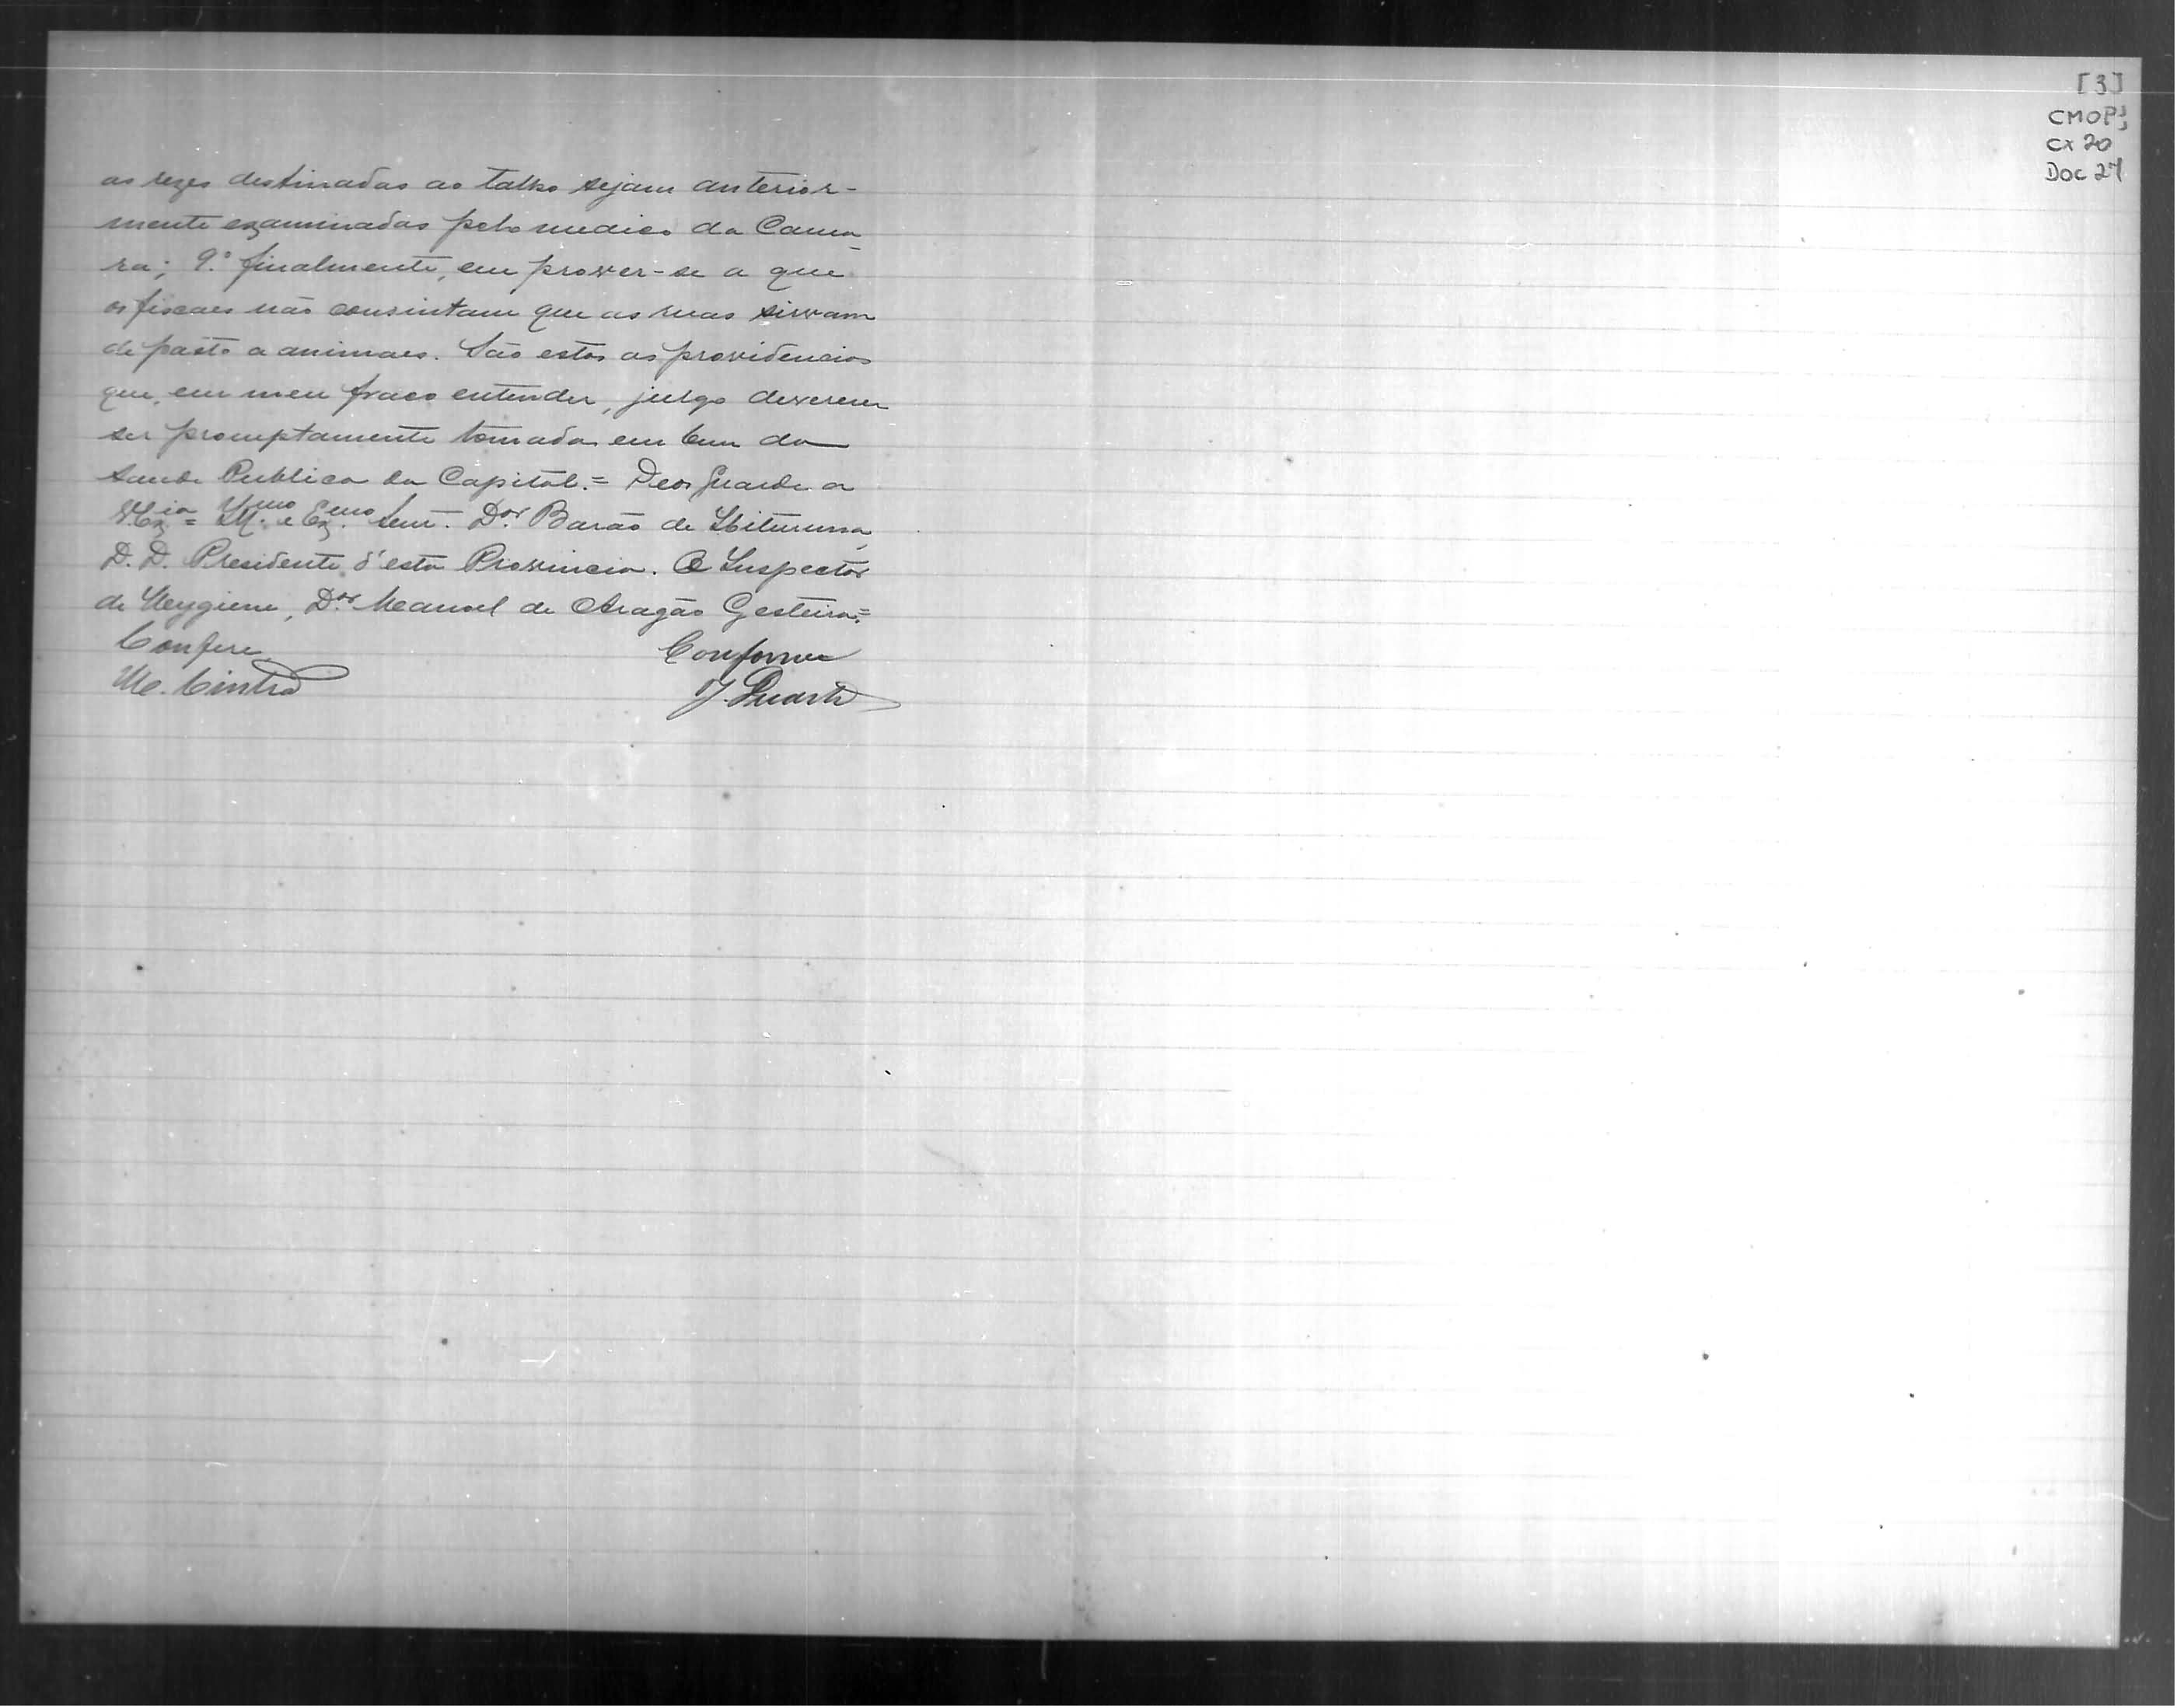 [3]
CMOP
CX 20
Doc 27
as rezes destinadas ao talho sejam anterior-
mente examinadas pelo medico da Cama-
ra; 9.º finalmente, em prover-se a que
os fiscaes não consintam que as ruas sirvam
de pasto a animaes. São estas as providencias
que, em meu fraco entender, julgo deverem
ser promptamente tomadas em bem da
Saude Publica da Capital.= Deos Guarde a
V. Ex.cia = Ill.mo e Ex.mo Senr. D.or Barão de Ibituruna,
D. D. Presidente d'esta Provincia. O Inspector
de Hygiene, D.or Manoel de Aragão Gesteira.=
Confere
Conforme
M. Cintra
J. Duarte